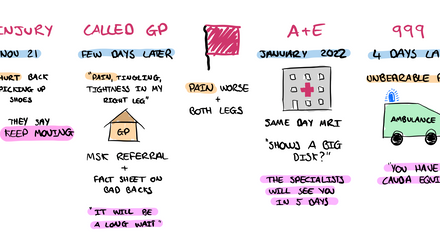 INJURY
NOV 21
HURT BACK
PICKING UP
SHOES
THEY SAY
KEEP MOVING
CALLED GP
FEW DAYS LATER
"PAIN, TINGLING,
TIGHTNESS IN MY
RIGHT LEG"
GP
MSK REFERRAL
+
FACT SHEET ON
BAD BACKS
"IT WILL BE
A LONG WAIT"
PAIN WORSE
+
BOTH LEGS
A+E
JANUARY 2022
SAME DAY MRI
"SHOWS A BIG
DISK?"
THE SPECIALISTS
WILL SEE YOU
IN 5 DAYS
999
4 DAYS
UNBEARABLE
AMBULANCE
"YOU HAVE
CAUDA